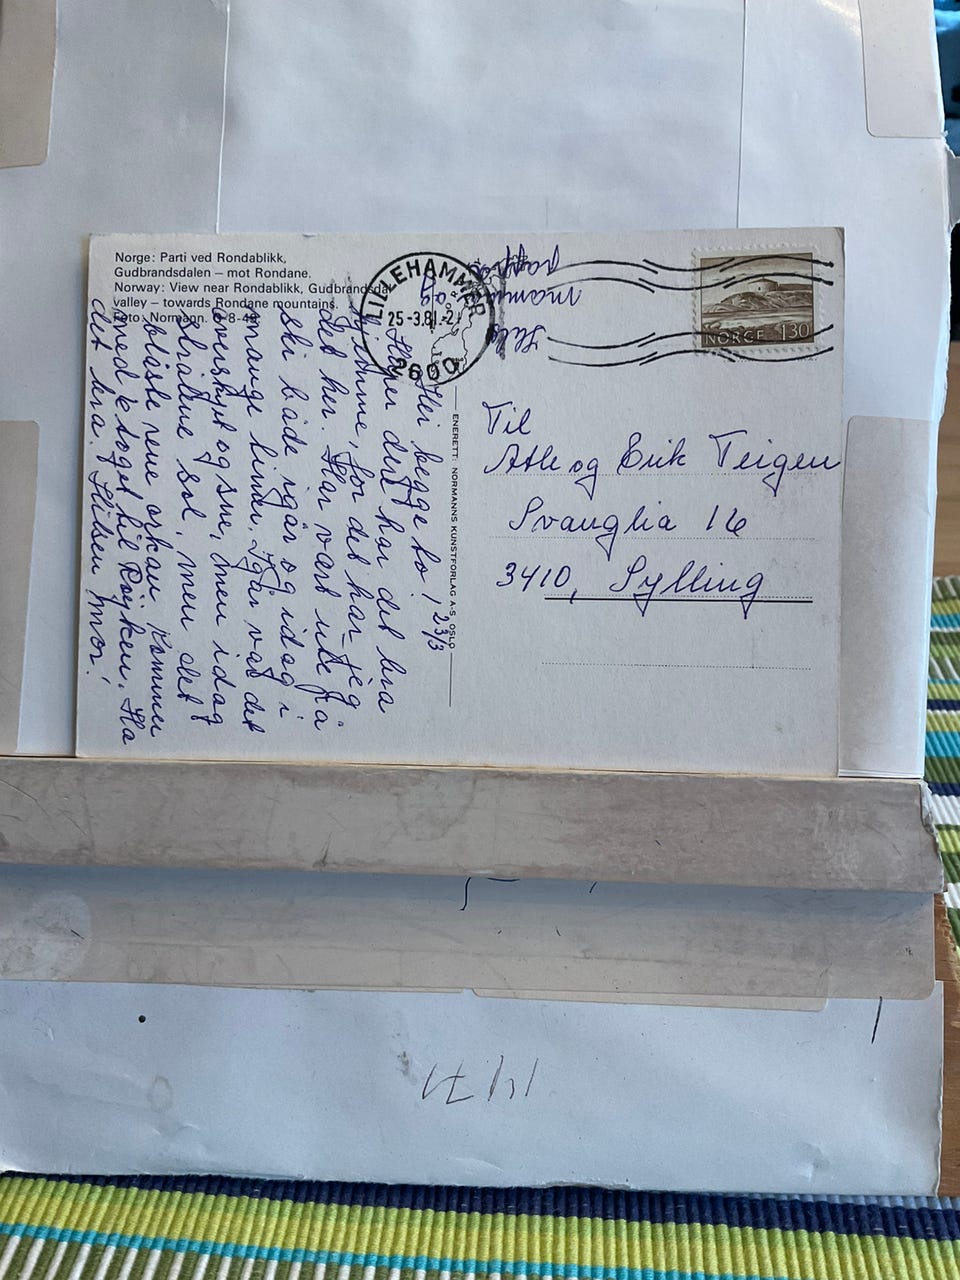 Norge: Parti ved Rondablikk,
Gudbrandsdalen – mot Rondane.
Norway: View near Rondablikk, Gudbrandsdal
valley – towards Rondane mountains.
Foto: Normann. 8-8-4
LILLEHAMMER
25-3.81.-2
2600
NORGE 130
Hils
mamma og
pappa
Hei begge to! 23/3
Håper dere har det bra
hjemme, for det har jeg
det her. Har vært ute på
ski både igår og idag i
mange timer. Igår var det
overskyet og snø, men idag
strålende sol, men det
blåste rene orkan. Kommer
med toget til Røyken. Ha
det bra. Hilsen mor!
ENERETT: NORMANNS KUNSTFORLAG A·S OSLO
Til
Atle og Erik Teigen
Svanglia 16
3410, Sylling